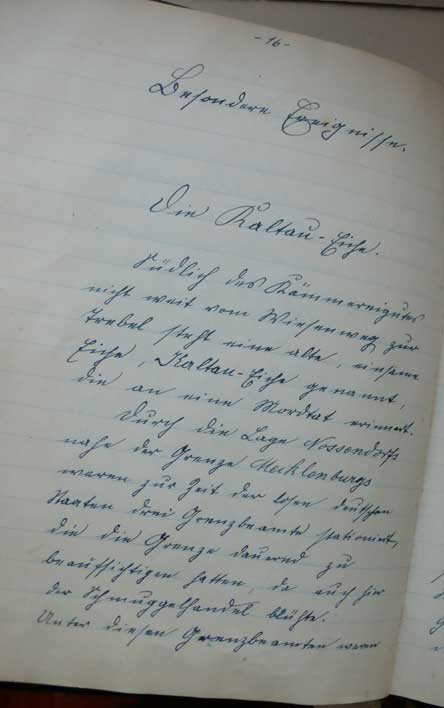 - 16 -
Besondere Ereignisse.
Die Kaltau-Eiche.
Südlich des Kämmereigutes
nicht weit vom Wiesenweg zur
Trebel steht eine alte, einsame
Eiche, Kaltau-Eiche genannt,
die an eine Mordtat erinnert.
Durch die Lage Nossendorfs
nahe der Grenze Mecklenburgs
waren zur Zeit der losen deutschen
Staaten drei Grenzbeamte stationiert,
die die Grenze dauernd zu
beaufsichtigen hatten, da auch hier
der Schmuggelhandel blühte.
Unter diesen Grenzbeamten waren